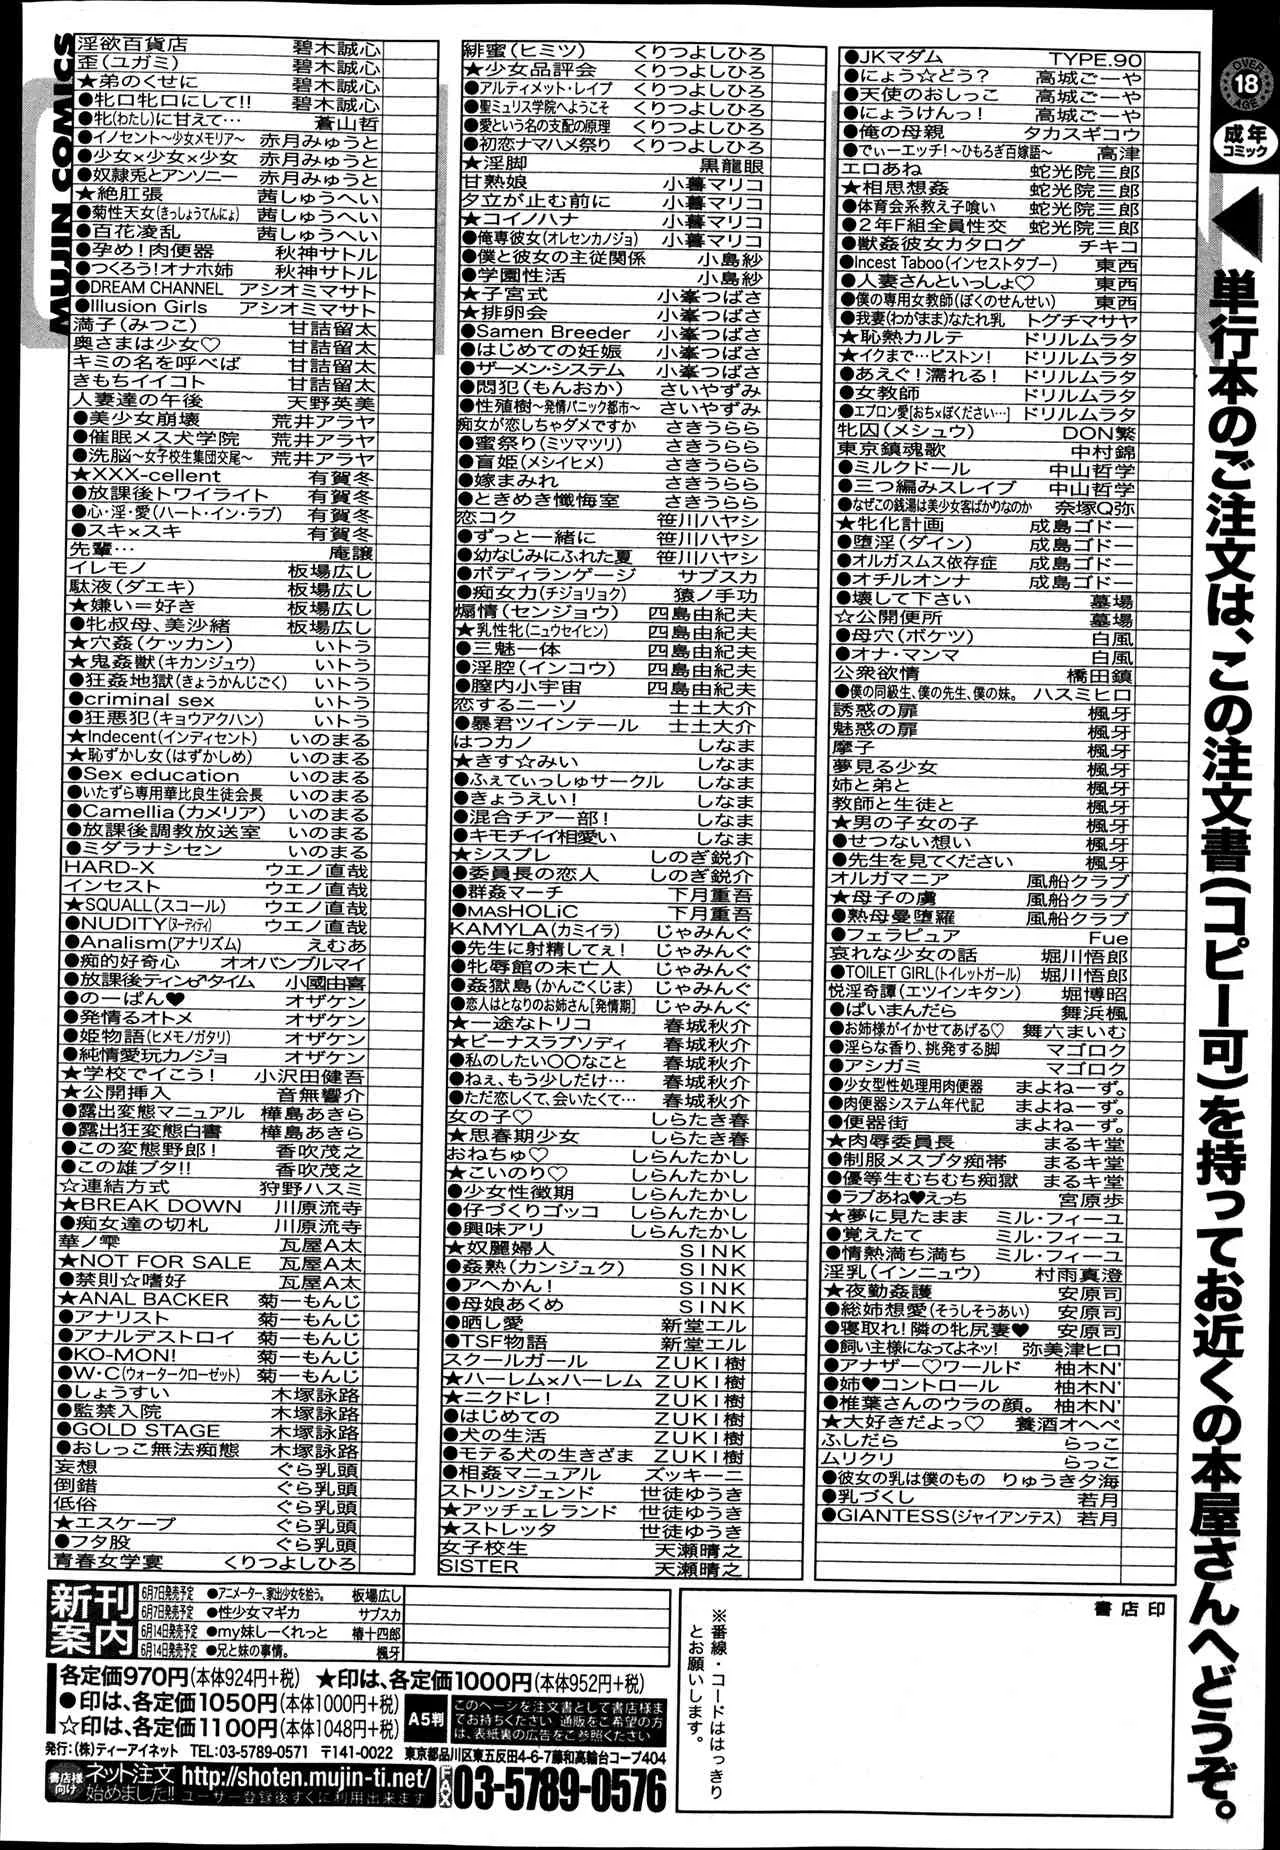 MUJIN COMICS
淫欲百貨店 碧木誠心
歪(ユガミ) 碧木誠心
★弟のくせに 碧木誠心
●牝口牝口にして!! 碧木誠心
●牝(わたし)に甘えて… 蒼山哲
●イノセント〜少女メモリア〜 赤月みゅうと
●少女×少女×少女 赤月みゅうと
●奴隷兎とアンソニー 赤月みゅうと
★絶肛張 茜しゅうへい
●菊性天女(きっしょうてんにょ) 茜しゅうへい
●百花凌乱 茜しゅうへい
●孕め!肉便器 秋神サトル
●つくろう!オナホ姉 秋神サトル
●DREAM CHANNEL アシオミマサト
●Illusion Girls アシオミマサト
満子(みつこ) 甘詰留太
奥さまは少女♡ 甘詰留太
キミの名を呼べば 甘詰留太
きもちイイコト 甘詰留太
人妻達の午後 天野英美
●美少女崩壊 荒井アラヤ
●催眠メス犬学院 荒井アラヤ
●洗脳〜女子校生集団交尾〜 荒井アラヤ
★XXX-cellent 有賀冬
●放課後トワイライト 有賀冬
●心・淫・愛(ハート・イン・ラブ) 有賀冬
●スキ×スキ 有賀冬
先輩… 庵譲
イレモノ 板場広し
駄液(ダエキ) 板場広し
★嫌い=好き 板場広し
●牝叔母、美沙緒 板場広し
★穴姦(ケッカン) いトう
★鬼姦獣(キカンジュウ) いトう
●狂姦地獄(きょうかんじごく) いトう
●criminal sex いトう
●狂悪犯(キョウアクハン) いトう
★Indecent(インディセント) いのまる
★恥ずかし女(はずかしめ) いのまる
●Sex education いのまる
●いたずら専用華比良生徒会長 いのまる
●Camellia(カメリア) いのまる
●放課後調教放送室 いのまる
●ミダラナシセン いのまる
HARD-X ウエノ直哉
インセスト ウエノ直哉
★SQUALL(スコール) ウエノ直哉
●NUDITY(ヌーディティ) ウエノ直哉
●Analism(アナリズム) えむあ
●痴的好奇心 オオバンブルマイ
●放課後ティン♂タイム 小國由喜
●のーぱん♥ オザケン
●発情るオトメ オザケン
●姫物語(ヒメモノガタリ) オザケン
●純情愛玩カノジョ オザケン
★学校でイこう! 小沢田健吾
★公開挿入 音無響介
●露出変態マニュアル 樺島あきら
●露出狂変態白書 樺島あきら
●この変態野郎! 香吹茂之
●この雄ブタ!! 香吹茂之
☆連結方式 狩野ハスミ
★BREAK DOWN 川原流寺
●痴女達の切札 川原流寺
華ノ雫 瓦屋A太
★NOT FOR SALE 瓦屋A太
●禁則☆嗜好 瓦屋A太
★ANAL BACKER 菊一もんじ
●アナリスト 菊一もんじ
●アナルデストロイ 菊一もんじ
●KO-MON! 菊一もんじ
●W・C(ウォータークローゼット) 菊一もんじ
●しょうすい 木塚詠路
●監禁入院 木塚詠路
●GOLD STAGE 木塚詠路
●おしっこ無法痴態 木塚詠路
妄想 ぐら乳頭
倒錯 ぐら乳頭
低俗 ぐら乳頭
★エスケープ ぐら乳頭
●フタ股 ぐら乳頭
青春女学宴 くりつよしひろ
緋蜜(ヒミツ) くりつよしひろ
★少女品評会 くりつよしひろ
●アルティメット・レイプ くりつよしひろ
●聖ミュリス学院へようこそ くりつよしひろ
●愛という名の支配の原理 くりつよしひろ
●初恋ナマハメ祭り くりつよしひろ
★淫脚 黒龍眼
甘熟娘 小暮マリコ
夕立が止む前に 小暮マリコ
★コイノハナ 小暮マリコ
●俺専彼女(オレセンカノジョ) 小暮マリコ
●僕と彼女の主従関係 小島紗
●学園性活 小島紗
★子宮式 小峯つばさ
★排卵会 小峯つばさ
●Samen Breeder 小峯つばさ
●はじめての妊娠 小峯つばさ
●ザーメン・システム 小峯つばさ
●悶犯(もんおか) さいやずみ
●性殖樹〜発情パニック都市〜 さいやずみ
痴女が恋しちゃダメですか さきうらら
●蜜祭り(ミツマツリ) さきうらら
●盲姫(メシイヒメ) さきうらら
●嫁まみれ さきうらら
●ときめき懺悔室 さきうらら
恋コク 笹川ハヤシ
●ずっと一緒に 笹川ハヤシ
●幼なじみにふれた夏 笹川ハヤシ
●ボディランゲージ サブスカ
●痴女力(チジョリョク) 猿ノ手功
煽情(センジョウ) 四島由紀夫
★乳性牝(ニュウセイヒン) 四島由紀夫
●三魅一体 四島由紀夫
●淫腔(インコウ) 四島由紀夫
●膣内小宇宙 四島由紀夫
恋するニーソ 士土大介
●暴君ツインテール 士土大介
はつカノ しなま
★きす☆みい しなま
●ふぇてぃっしゅサークル しなま
●きょうえい! しなま
●混合チアー部! しなま
●キモチイイ相愛い しなま
★シスプレ しのぎ鋭介
●委員長の恋人 しのぎ鋭介
●群姦マーチ 下月重吾
●MASHOLiC 下月重吾
KAMYLA(カミイラ) じゃみんぐ
●先生に射精してぇ! じゃみんぐ
●牝辱館の未亡人 じゃみんぐ
●姦獄島(かんごくじま) じゃみんぐ
●恋人はとなりのお姉さん[発情期] じゃみんぐ
★一途なトリコ 春城秋介
★ビーナスラプソディ 春城秋介
●私のしたい〇〇なこと 春城秋介
●ねぇ、もう少しだけ… 春城秋介
●ただ恋しくて、会いたくて… 春城秋介
女の子♡ しらたき春
★思春期少女 しらたき春
おねちゅ♡ しらんたかし
★こいのり♡ しらんたかし
●少女性徴期 しらんたかし
●仔づくりゴッコ しらんたかし
●興味アリ しらんたかし
★奴麗婦人 SINK
●姦熟(カンジュク) SINK
●アへかん! SINK
●母娘あくめ SINK
●晒し愛 新堂エル
●TSF物語 新堂エル
スクールガール ZUKI樹
★ハーレム×ハーレム ZUKI樹
★ニクドレ! ZUKI樹
●はじめての ZUKI樹
●犬の生活 ZUKI樹
●モテる犬の生きざま ZUKI樹
●相姦マニュアル ズッキーニ
ストリンジェンド 世徒ゆうき
★アッチェレランド 世徒ゆうき
★ストレッタ 世徒ゆうき
女子校生 天瀬晴之
SISTER 天瀬晴之
●JKマダム TYPE.90
●にょう☆どう? 高城ごーや
●天使のおしっこ 高城ごーや
●にょうけんっ! 高城ごーや
●俺の母親 タカスギコウ
●でぃーエッチ!〜ひもろぎ百嫁語〜 高津
エロあね 蛇光院三郎
★相思想姦 蛇光院三郎
●体育会系教え子喰い 蛇光院三郎
●2年F組全員性交 蛇光院三郎
●獣姦彼女カタログ チキコ
●Incest Taboo(インセストタブー) 東西
●人妻さんといっしょ♡ 東西
●僕の専用女教師(ぼくのせんせい) 東西
●我妻(わがまま)なたれ乳 トグチマサヤ
★恥熱カルテ ドリルムラタ
★イクまで…ピストン! ドリルムラタ
●あえぐ!濡れる! ドリルムラタ
●女教師 ドリルムラタ
●エプロン愛[おち×ぽください…] ドリルムラタ
牝囚(メシュウ) DON繁
東京鎮魂歌 中村錦
●ミルクドール 中山哲学
●三つ編みスレイブ 中山哲学
●なぜこの銭湯は美少女客ばかりなのか 奈塚Q弥
★牝化計画 成島ゴドー
●堕淫(ダイン) 成島ゴドー
●オルガスムス依存症 成島ゴドー
●オチルオンナ 成島ゴドー
●壊して下さい 墓場
☆公開便所 墓場
●母穴(ボケツ) 白風
●オナ・マンマ 白風
公衆欲情 橋田鎮
●僕の同級生、僕の先生、僕の妹。 ハスミヒロ
誘惑の扉 楓牙
魅惑の扉 楓牙
摩子 楓牙
夢見る少女 楓牙
姉と弟と 楓牙
教師と生徒と 楓牙
★男の子女の子 楓牙
●せつない想い 楓牙
●先生を見てください 楓牙
オルガマニア 風船クラブ
★母子の虜 風船クラブ
●熟母曼堕羅 風船クラブ
●フェラピュア Fue
哀れな少女の話 堀川悟郎
●TOILET GIRL(トイレットガール) 堀川悟郎
悦淫奇譚(エツインキタン) 堀博昭
●ぱいまんだら 舞浜楓
●お姉様がイかせてあげる♡ 舞六まいむ
●淫らな香り、挑発する脚 マゴロク
●アシガミ マゴロク
●少女型性処理用肉便器 まよねーず。
●肉便器システム年代記 まよねーず。
●便器街 まよねーず。
★肉辱委員長 まるキ堂
●制服メスブタ痴帯 まるキ堂
●優等生むちむち痴獄 まるキ堂
●ラブあね♥えっち 宮原歩
★夢に見たまま ミル・フィーユ
●覚えたて ミル・フィーユ
●情熱満ち満ち ミル・フィーユ
淫乳(インニュウ) 村雨真澄
★夜勤姦護 安原司
●総姉想愛(そうしそうあい) 安原司
●寝取れ!隣の牝尻妻♥ 安原司
●飼い主様になってよネッ! 弥美津ヒロ
●アナザー♡ワールド 柚木N'
●姉♥コントロール 柚木N'
●椎葉さんのウラの顔。 柚木N'
★大好きだよっ♡ 養酒オヘペ
ふしだら らっこ
ムリクリ らっこ
●彼女の乳は僕のもの りゅうき夕海
●乳づくし 若月
●GIANTESS(ジャイアンテス) 若月
OVER 18 AGE
成年コミック
単行本のご注文は、この注文書(コピー可)を持ってお近くの本屋さんへどうぞ。
新刊案内
6月7日発売予定 ●アニメーター、家出少女を拾う。 板場広し
6月7日発売予定 ●性少女マギカ サブスカ
6月14日発売予定 ●my妹しーくれっと 椿十四郎
6月14日発売予定 ●兄と妹の事情。 楓牙
各定価970円(本体924円+税) ★印は、各定価1000円(本体952円+税)
●印は、各定価1050円(本体1000円+税)
☆印は、各定価1100円(本体1048円+税)
A5判
このページを注文書として書店様まで
お持ちください 通販をご希望の方
は、表紙裏の広告をご参照ください
発行:(株)ティーアイネット TEL:03-5789-0571 〒141-0022 東京都品川区東五反田4-6-7藤和高輪台コープ404
書店様向け ネット注文始めました!! http://shoten.mujin-ti.net/
ユーザー登録後すぐに利用出来ます
FAX 03-5789-0576
書店印
※番線・コードははっきり
とお願いします。